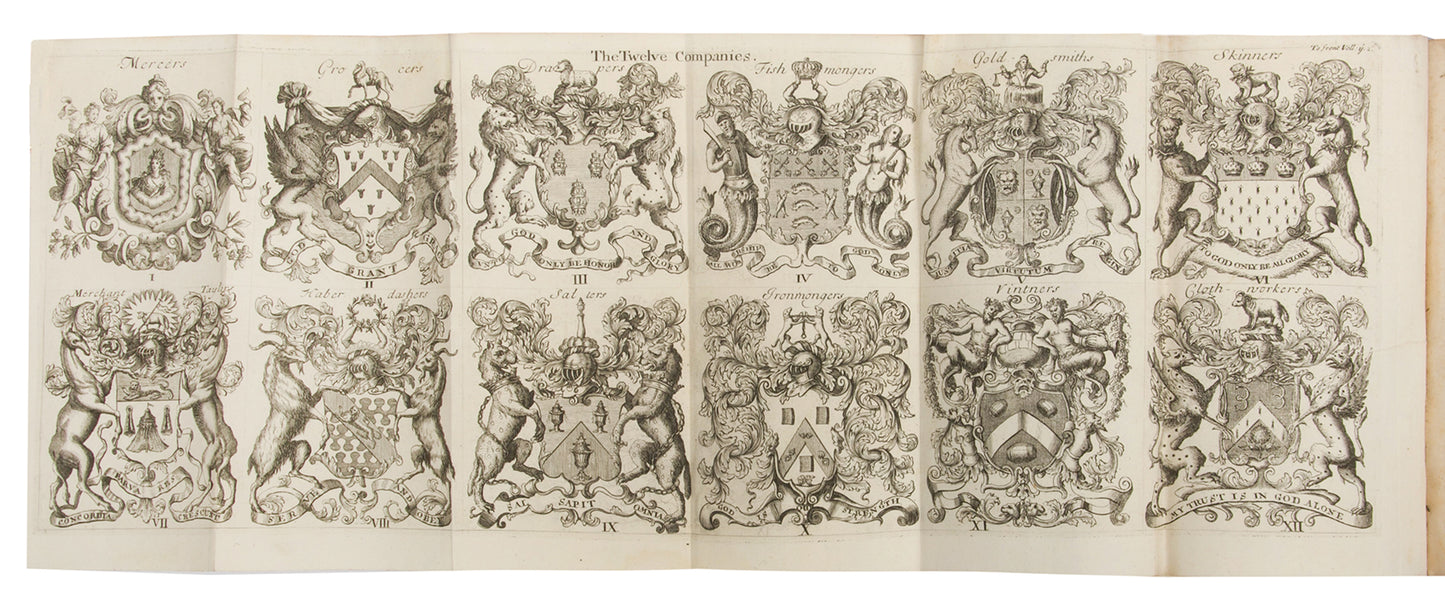 The Twelve Companies.
To front Voll. ij.
Mercers
I
Gro cers
GOD GRANT GRACE
II
Dra pers
UNTO GOD ONLY BE HONOR AND GLORY
III
Fish mongers
ALL WORSHIP BE TO GOD ONLY
IV
Gold smiths
JUSTITIA VIRTUTUM REGINA
Skinners
TO GOD ONLY BE ALL GLORY
VI
Merchant Taylors
CONCORDIA PARVÆ RES CRESCUNT
VII
Haber dashers
SERVE AND OBEY
VIII
Sal ters
SAL SAPIT OMNIA
IX
Ironmongers
GOD IS STRENGTH
X
Vintners
XI
Cloth-workers
MY TRUST IS IN GOD ALONE
XII